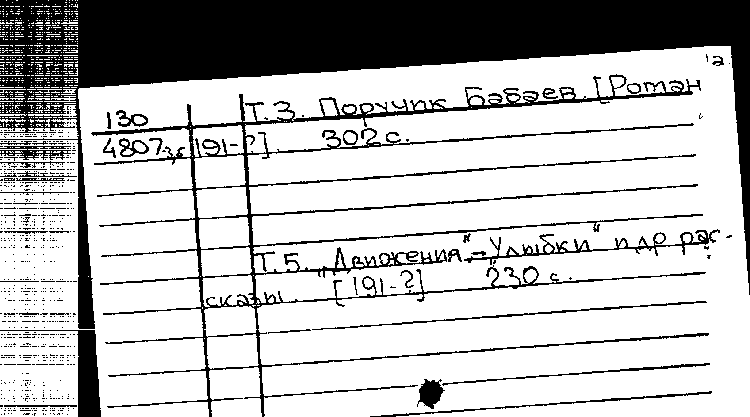 130 Т. 3. Поручик Бабаев. [Роман
4807 [191-?]. 302 с.
Т. 5. „Движения“. – „Улыбки“ и др рас-
сказы. [191-?] 230 с.